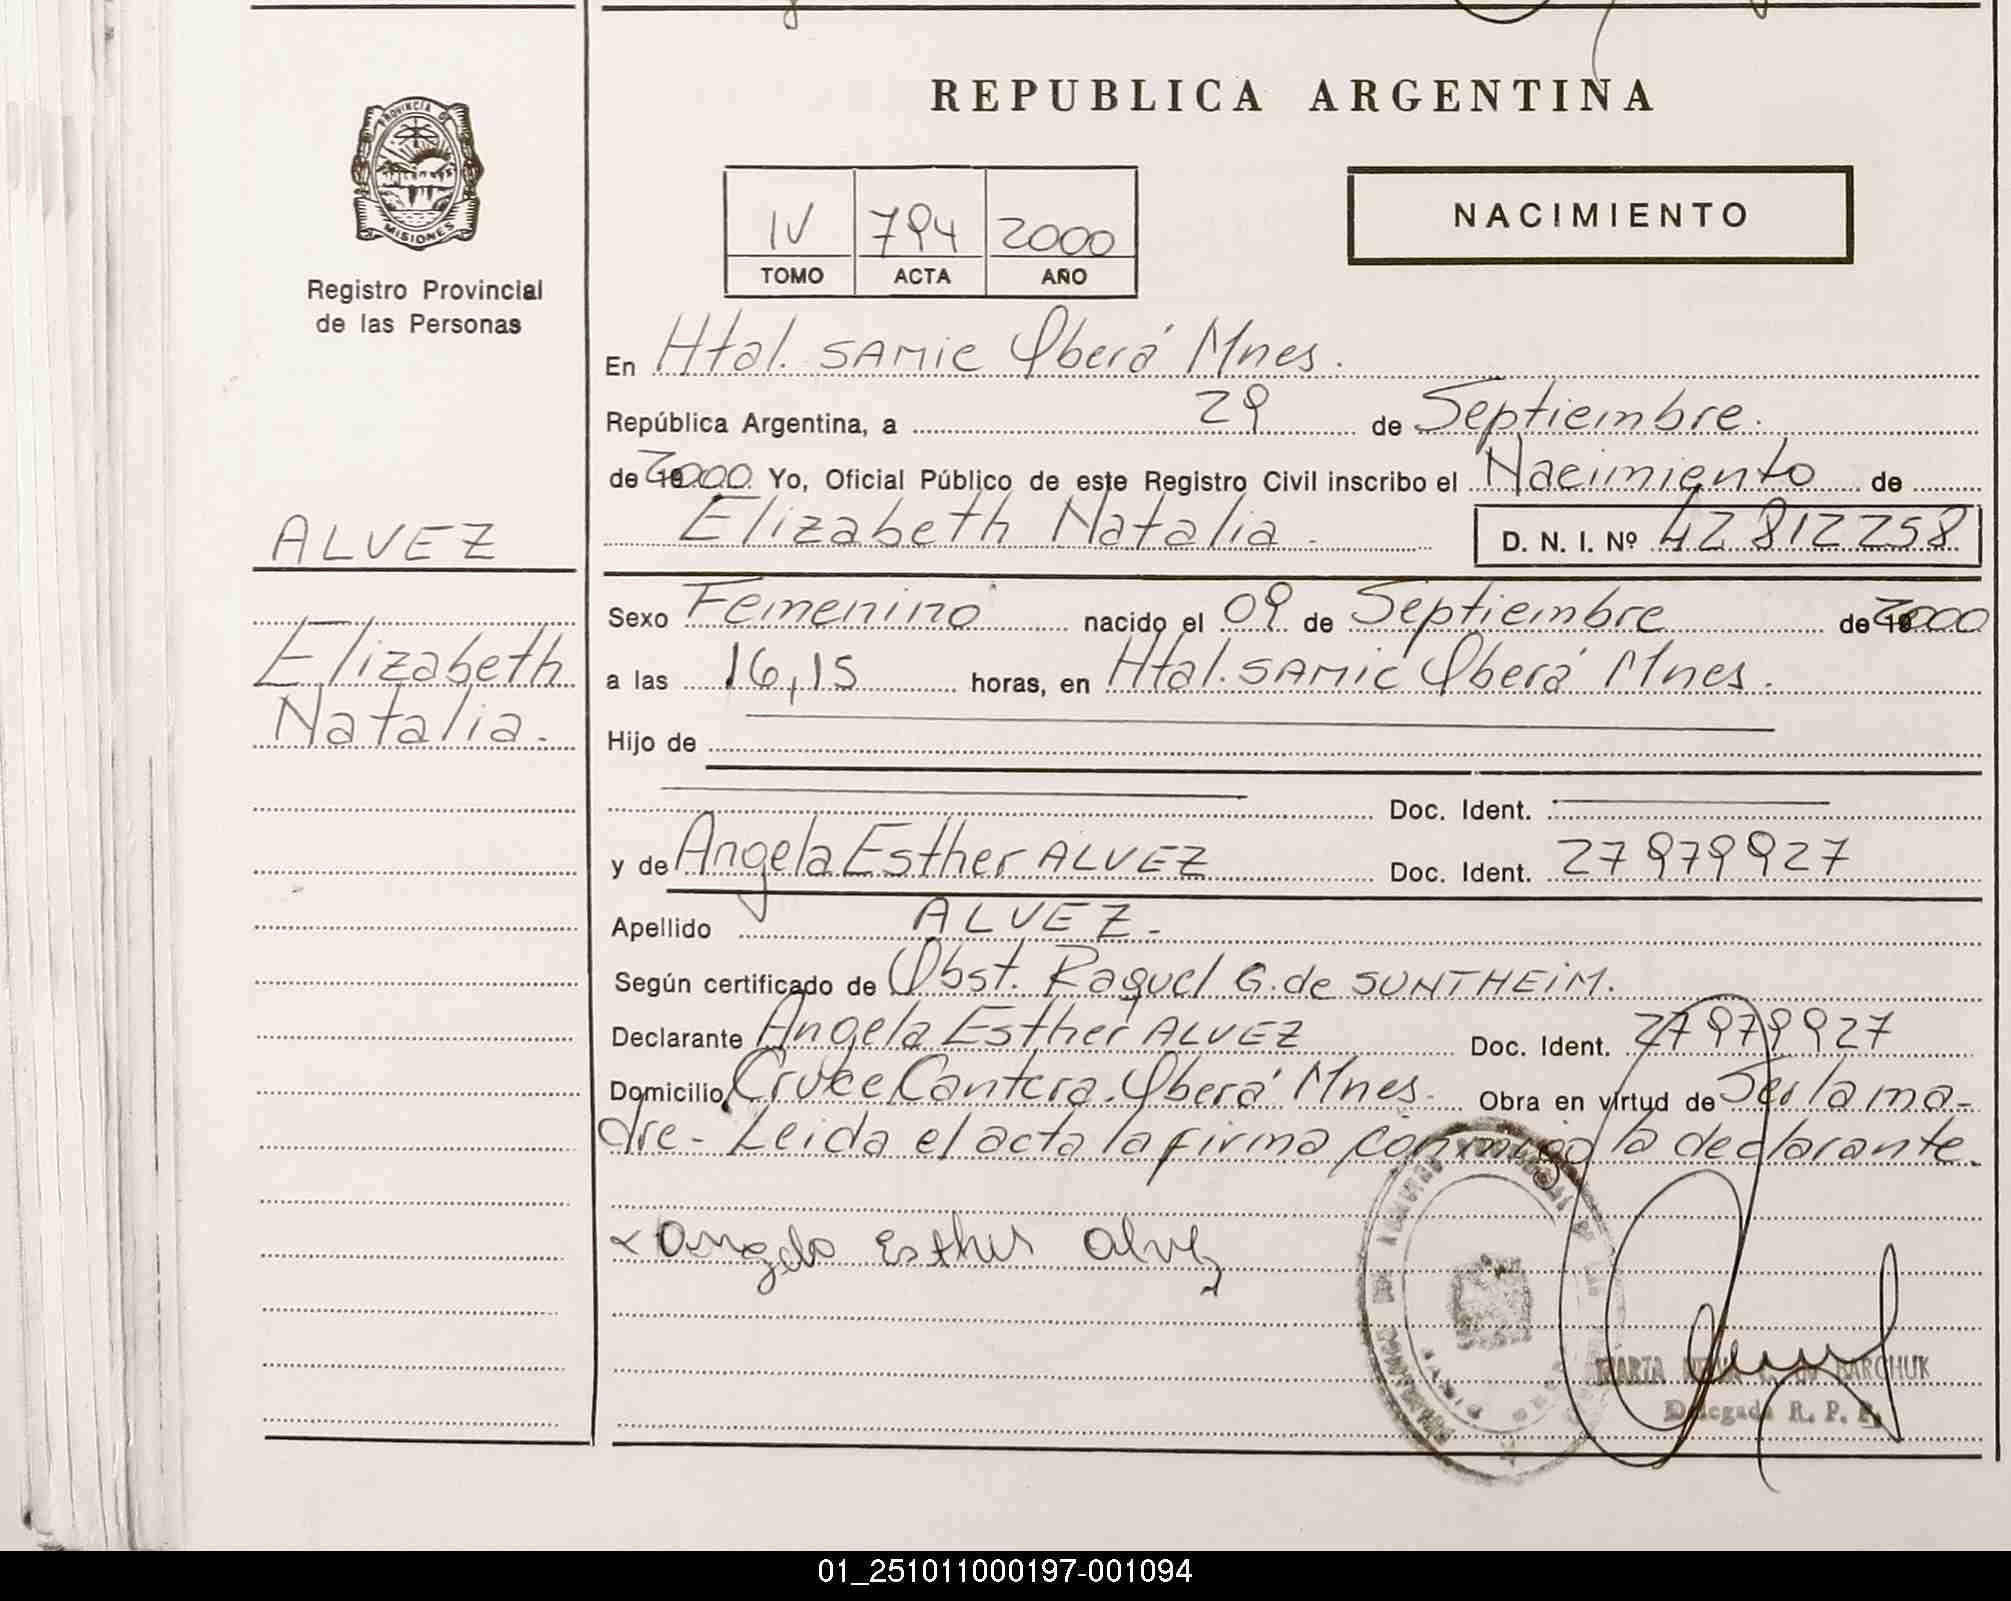 REPUBLICA ARGENTINA
PROVINCIA DE
MISIONES
Registro Provincial
de las Personas
IV 794 2000
TOMO ACTA AÑO
NACIMIENTO
En Htal. SAMIC Oberá Mnes.
República Argentina, a 29 de Septiembre.
de 2000 Yo, Oficial Público de este Registro Civil inscribo el Nacimiento de
Elizabeth Natalia. D. N. I. Nº 42 812258
ALVEZ
Elizabeth
Natalia.
Sexo Femenino nacido el 09 de Septiembre de 2000
a las 16,15 horas, en Htal. SAMIC Oberá Mnes.
Hijo de
Doc. Ident.
y de Angela Esther ALVEZ Doc. Ident. 27979927
Apellido ALVEZ.
Según certificado de Obst. Raquel G. de SUNTHEIM.
Declarante Angela Esther ALVEZ Doc. Ident. 27979927
Domicilio Cruce Cantera. Oberá Mnes. Obra en virtud de Ser la ma-
dre- Leida el acta la firma conmigo la declarante.
x Angela Esther Alvez
MARTA BARCHUK
Delegada R. P. P.
01_251011000197-001094